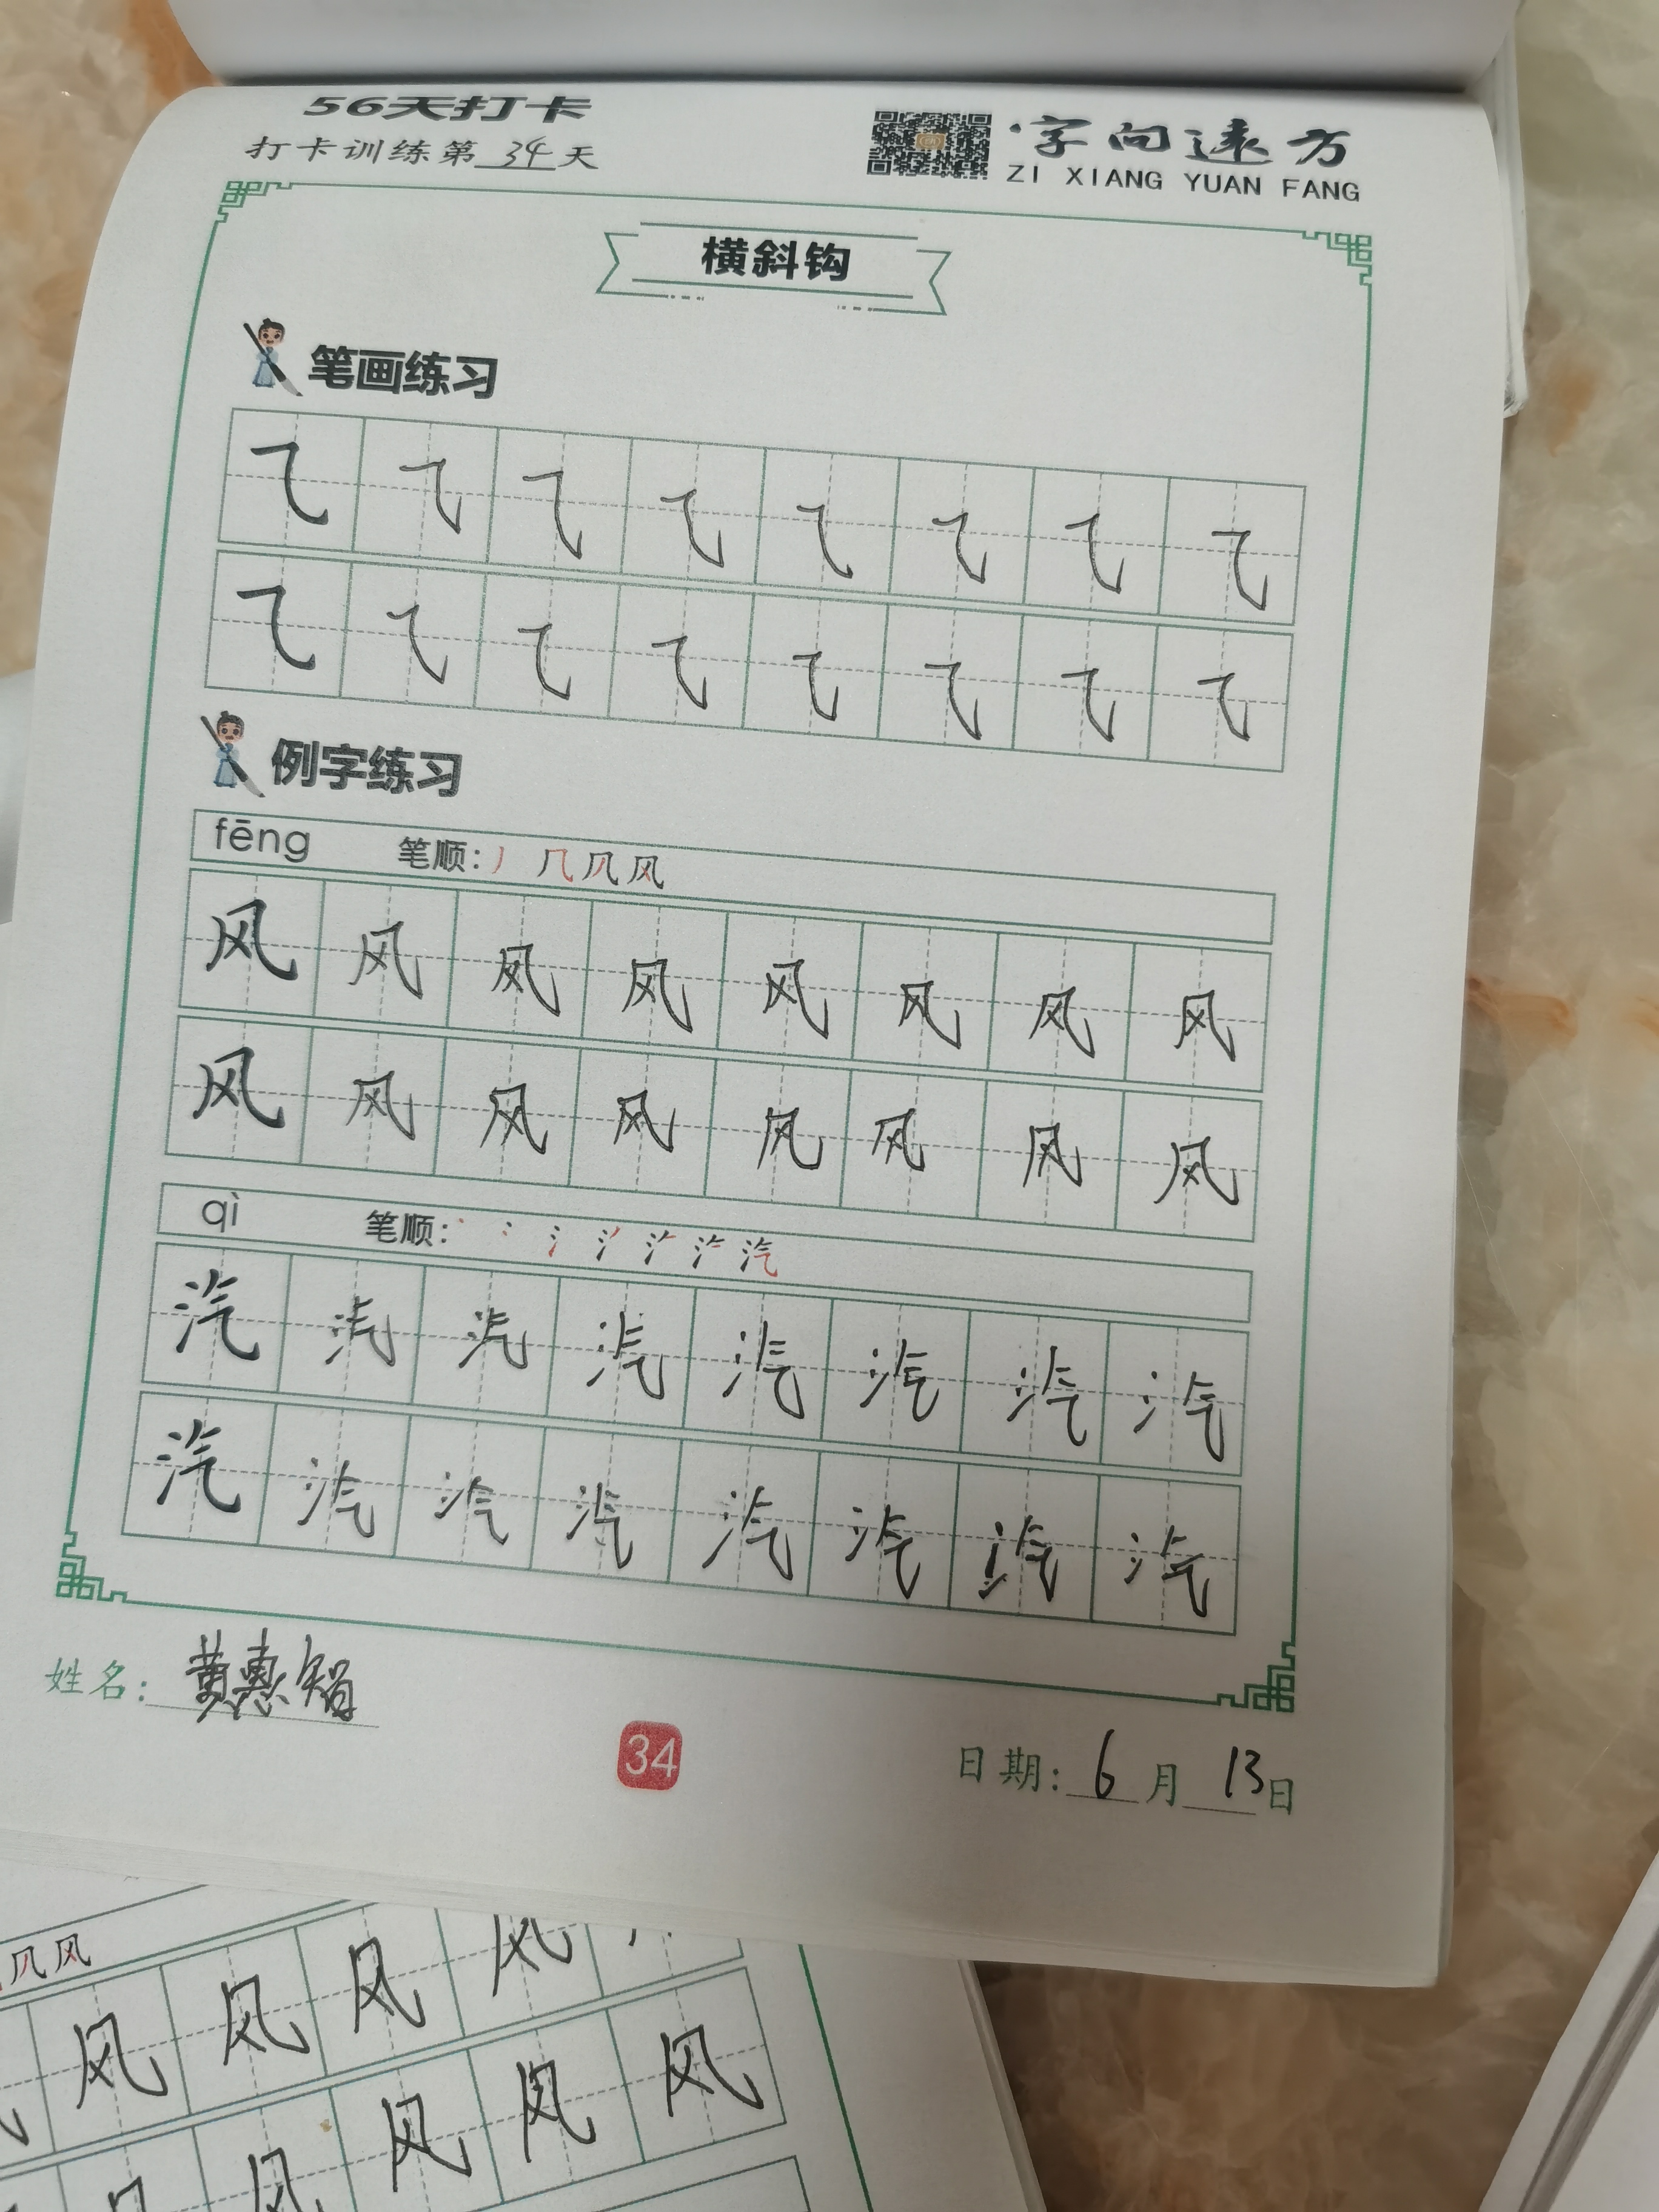 56天打卡
打卡训练第34天
字向远方
ZI XIANG YUAN FANG
横斜钩
笔画练习
㇈ ㇈ ㇈ ㇈ ㇈ ㇈ ㇈ ㇈
㇈ ㇈ ㇈ ㇈ ㇈ ㇈ ㇈ ㇈
例字练习
fēng 笔顺: 丿 几 凡 风
风 风 风 风 风 风 风 风
风 风 风 风 风 风 风 风
qì 笔顺: 汽
汽 汽 汽 汽 汽 汽 汽 汽
汽 汽 汽 汽 汽 汽 汽 汽
姓名: 黄惠娟
34
日期: 6月13日
风
风 风 风 风
风 风 风 风